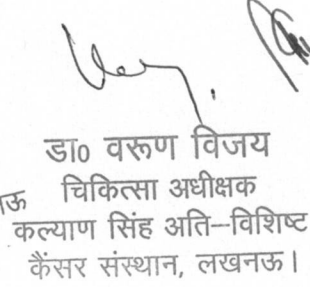 डा० वरूण विजय
चिकित्सा अधीक्षक
कल्याण सिंह अति–विशिष्ट
कैंसर संस्थान, लखनऊ।